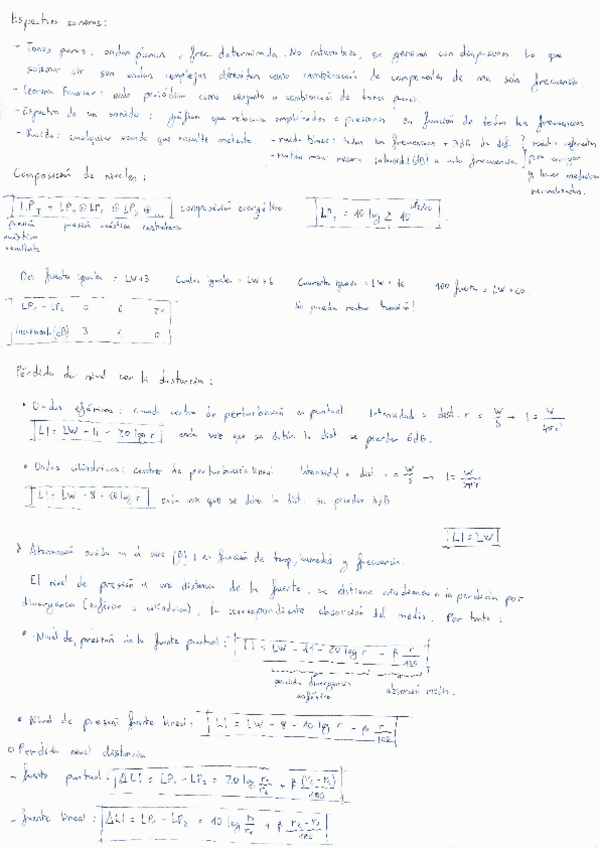 Espectros sonoros:
- Tonos puros: ondas planas, frec determinada. No naturaleza, se generan con diapasones. Lo que
solemos oir son ondas complejas obtenidas como combinación de componentes de una sola frecuencia
- Teorema Fourier: onda periódica como conjunto o combinación de tonos puros.
- Espectro de un sonido: gráfica que relaciona amplitudes o presiones en función de todas las frecuencias
- Ruido: cualquier sonido que resulte molesto
- ruido blanco: todas las frecuencias + 3dB de dif.
- ruido rosa: misma intensidad (dB) a cada frecuencia
ruidos
para
y hacer mediciones
normalizadas.
Composición de niveles:
LP_T = LP_1 ⊕ LP_2 ⊕ LP_3 ⊕ ... composición energética
LP_T = 10 log Σ 10^(LPi/10)
presión acústica resultante
presión acústica
Dos fuentes iguales = LW+3 Cuatro iguales = LW+6 Cuarenta iguales = LW + 16 100 fuentes = LW+20
Se pueden restar también!
LP_1 - LP_2 0 6 20
Incremento (dB) 3 1 0
Pérdida de nivel con la distancia:
• Ondas esféricas: cuando centro de perturbación es puntual Intensidad a dist. r = W/S → I = W/4πr²
LI = LW - 11 - 20 log r cada vez que se dobla la dist se pierden 6dB.
• Ondas cilíndricas: centro de perturbación lineal Intensidad a dist. = W/S → I = W/2πr
LI = LW - 8 - 10 log r cada vez que se dobla la dist. se pierden 3dB
LI = LW
> Atenuación sonido en el aire (β) es en función de temp, humedad y frecuencia.
El nivel de presión a una distancia de la fuente, se obtiene añadiendo a la perdida por
divergencia (esférica o cilíndrica), la correspondiente absorción del medio. Por tanto:
• Nivel de presión en la fuente puntual: LI = LW - 11 - 20 log r - β r/100
perdida divergencia esférica
absorción medio.
• Nivel de presión fuente lineal: LI = LW - 8 - 10 log r - β r/100
○ Perdida nivel distancia
- fuente puntual: ΔLI = LP_1 - LP_2 = 20 log r_2/r_1 + β (r_2 - r_1)/100
- fuente lineal: ΔLI = LP_1 - LP_2 = 10 log r_2/r_1 + β (r_2 - r_1)/100